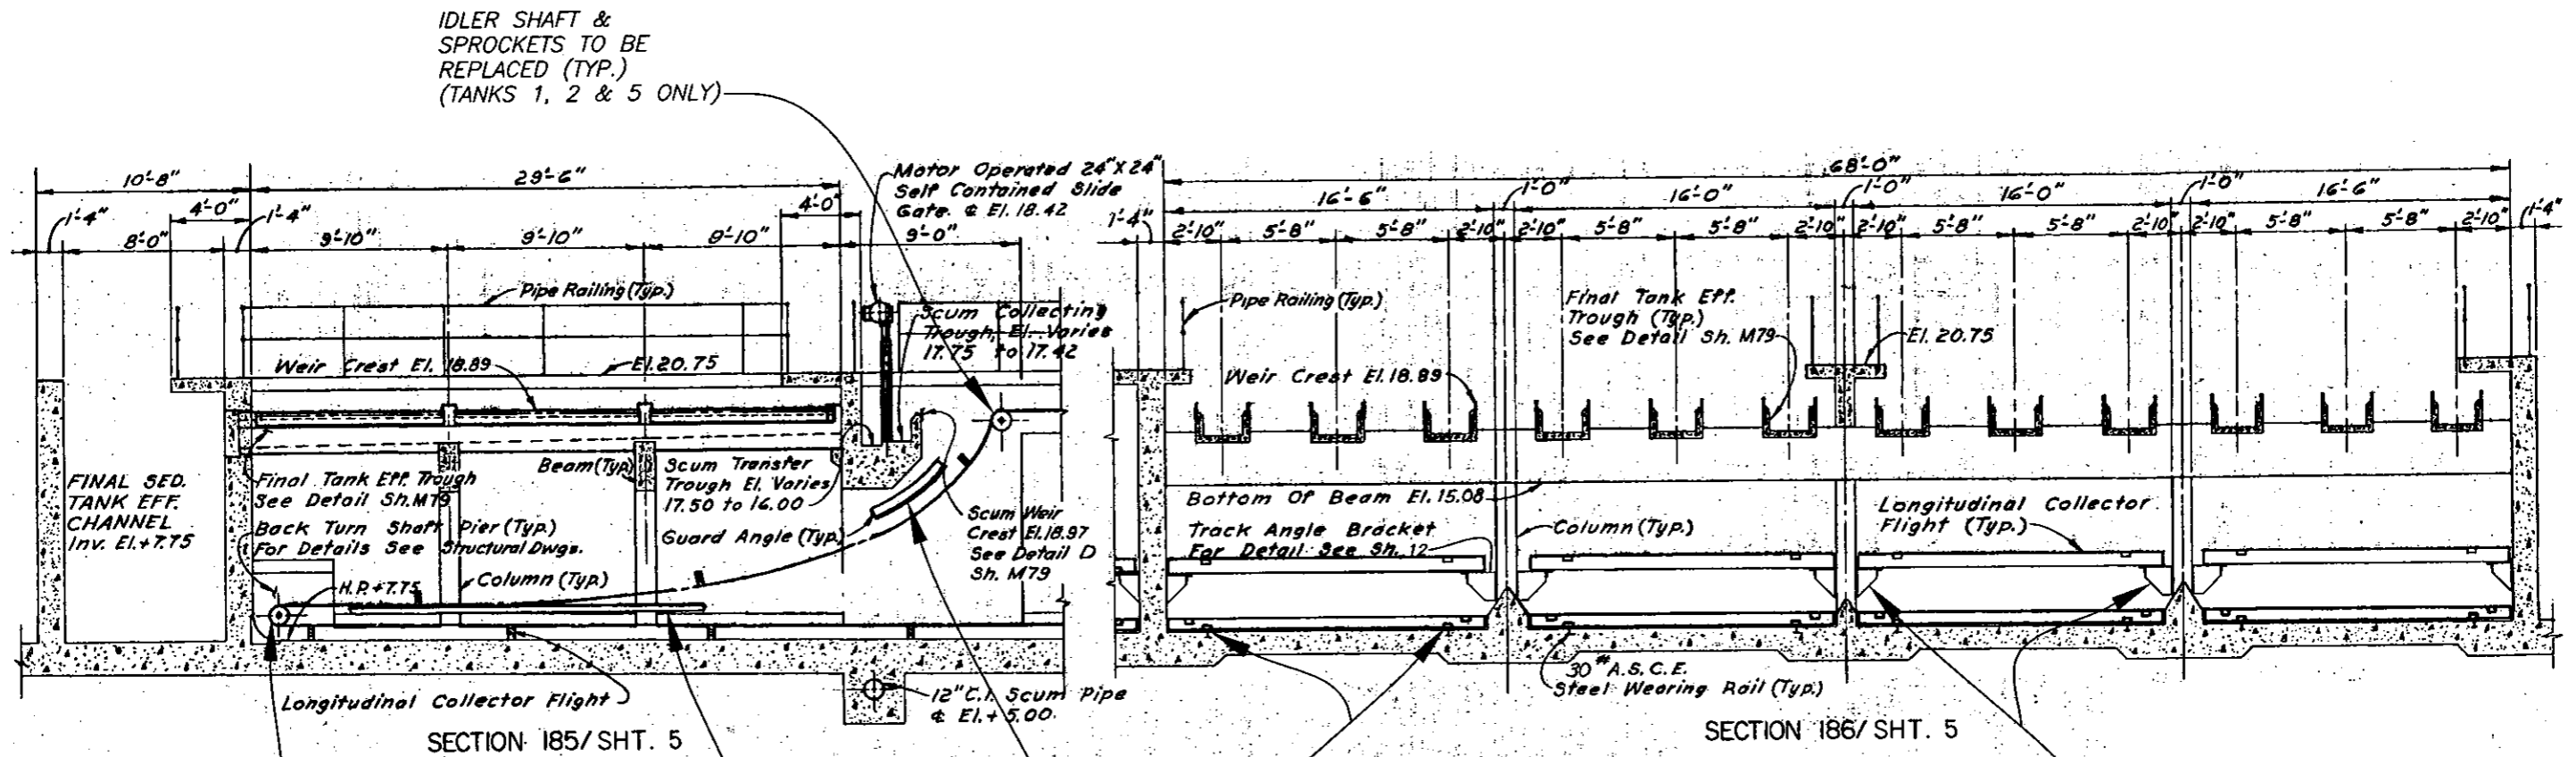 IDLER SHAFT &
SPROCKETS TO BE
REPLACED (TYP.)
(TANKS 1, 2 & 5 ONLY)
10'-8"
29'-6"
1'-4"
4'-0"
1'-4"
8'-0"
9'-10"
9'-10"
9'-10"
4'-0"
9'-0"
Motor Operated 24"X24"
Self Contained Slide
Gate. ℄ El. 18.42
Pipe Railing (Typ.)
Scum Collecting
Trough, El. Varies
17.75 to 17.42
Weir Crest El. 18.89
El. 20.75
FINAL SED.
TANK EFF.
CHANNEL
Inv. El.+7.75
Final Tank Eff. Trough
See Detail Sh. M79
Back Turn Shaft Pier (Typ.)
For Details See Structural Dwgs.
H.P. +7.75
Column (Typ.)
Beam (Typ.)
Scum Transfer
Trough El. Varies
17.50 to 16.00
Guard Angle (Typ.)
Scum Weir
Crest El. 18.97
See Detail D
Sh. M79
Longitudinal Collector Flight
12" C.I. Scum Pipe
℄ El. + 5.00
SECTION 185/SHT. 5
68'-0"
16'-6"
1'-0"
16'-0"
1'-0"
16'-0"
1'-0"
16'-6"
1'-4"
2'-10"
5'-8"
5'-8"
2'-10"
2'-10"
5'-8"
5'-8"
2'-10"
2'-10"
5'-8"
5'-8"
2'-10"
2'-10"
5'-8"
5'-8"
2'-10"
1'-4"
Pipe Railing (Typ.)
Final Tank Eff.
Trough (Typ.)
See Detail Sh. M79
El. 20.75
Weir Crest El. 18.89
Bottom Of Beam El. 15.08
Track Angle Bracket
For Detail See Sh. 12
Column (Typ.)
Longitudinal Collector
Flight (Typ.)
30# A.S.C.E.
Steel Wearing Rail (Typ.)
SECTION 186/SHT. 5